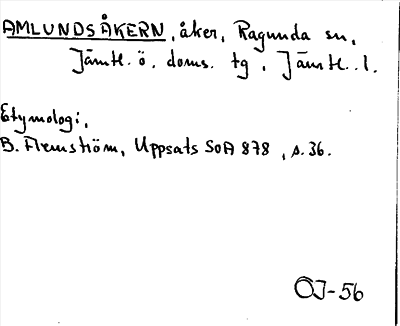 AMLUNDSÅKERN, åker, Ragunda sn,
Jämtl. ö. doms. tg, Jämtl. l.
Etymologi,
B. Flemström, Uppsats SOA 878, s. 36.
OJ-56